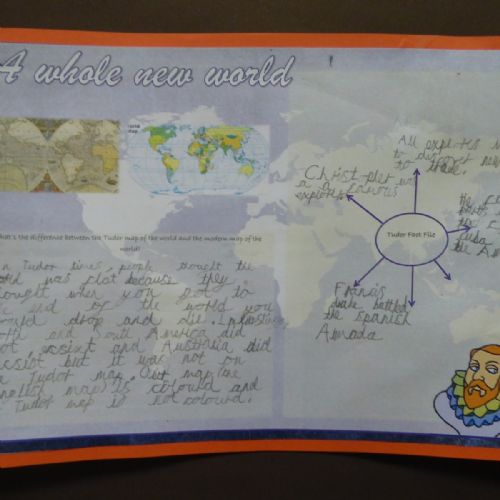 A whole new world
What's the difference between the Tudor map of the world and the modern map of the
world?
In Tudor times, people thought the
world was flat because they
thought when you got to
the end of the world you
would drop and die.
North and South America did
not exsist and Australia did
exsist but it was not on
a Tudor map. Our map
map is coloured and
Tudor map is not coloured.
All explores
to discover new
to trade.
Christ
a famous
explorer
Tudor Fact File
the
the A
Francis
drake battled
the spanish
Amada